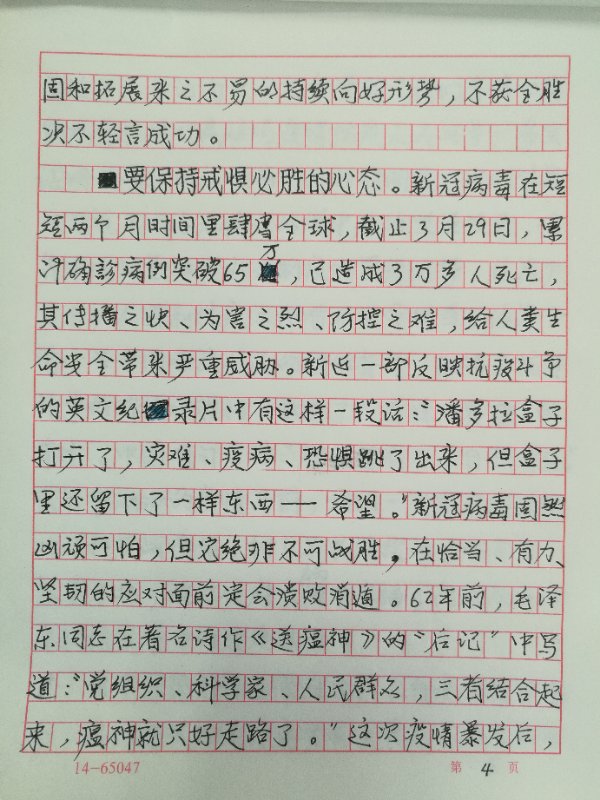 固和拓展来之不易的持续向好形势，不获全胜
决不轻言成功。
要保持戒惧必胜的心态。新冠病毒在短
短两个月时间里肆虐全球，截止3月29日，累
计确诊病例突破65万，已造成3万多人死亡，
其传播之快、为害之烈、防控之难，给人类生
命安全带来严重威胁。新近一部反映抗疫斗争
的英文纪录片中有这样一段话：“潘多拉盒子
打开了，灾难、疫病、恐惧跳了出来，但盒子
里还留下了一样东西——希望。”新冠病毒固然
凶顽可怕，但它绝非不可战胜。在恰当、有力、
坚韧的应对面前定会溃败消遁。62年前，毛泽
东同志在著名诗作《送瘟神》的“后记”中写
道：“党组织、科学家、人民群众，三者结合起
来，瘟神就只好走路了。”这次疫情暴发后，
14-65047 第 4 页